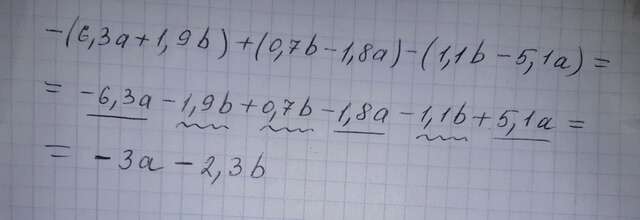 -(6,3a+1,9b)+(0,7b-1,8a)-(1,1b-5,1a)=
= -6,3a-1,9b+0,7b-1,8a-1,1b+5,1a=
= -3a-2,3b